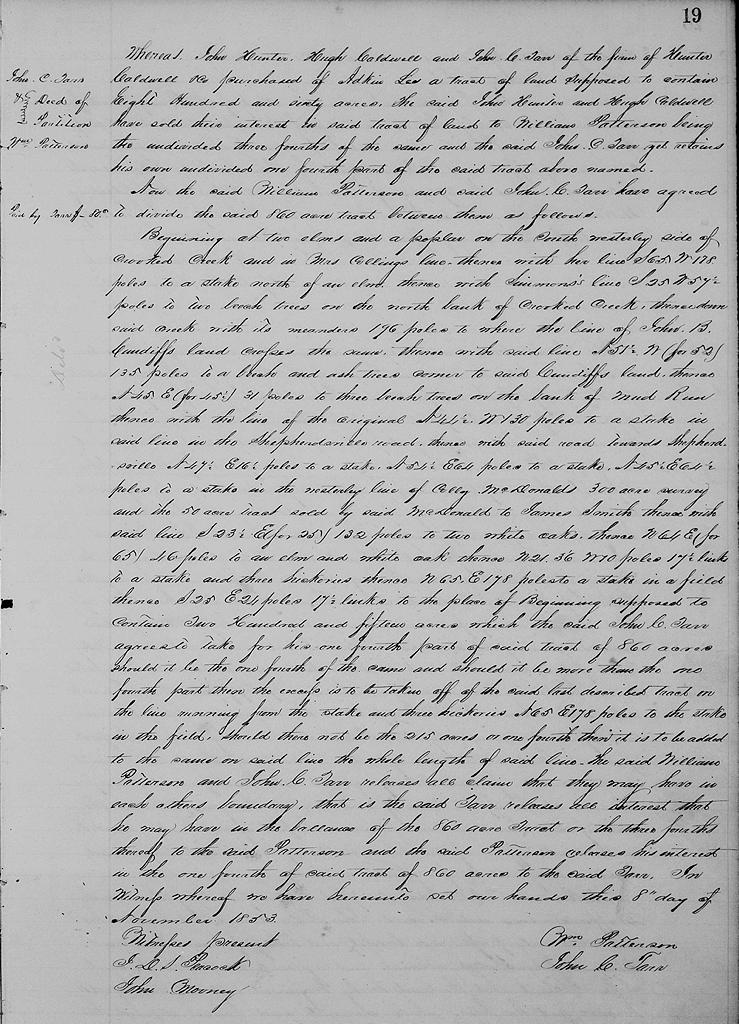 19
Whereas. John Hunter. Hugh Caldwell and John C. Tarr of the firm of Hunter
Caldwell &c purchased of Adkin Lee a tract of land supposed to contain
Eight Hundred and sixty acres. The said John Hunter and Hugh Caldwell
have sold their interest in said tract of land to William Patterson being
the undivided three fourths of the same and the said John C. Tarr yet retains
his own undivided one fourth part of the said tract above named.
Now the said William Patterson and said John C. Tarr have agreed
to divide the said 860 acre tract between them as follows.
John C. Tarr
& Deed of
Partition
Wm Patterson
Paid by Tarr
Beginning at two elms and a poplar on the South westerly side of
Crooked Creek and in Mrs Collings line. thence with her line S 65 W 178
poles to a stake north of an elm. thence with Simmons's line S 25 W 57½
poles to two beech trees on the north bank of Crooked Creek. thence down
said creek with its meanders 196 poles to where the line of John B.
Cundiffs land crosses the same. thence with said line N 51½ W (for 52)
135 poles to a beech and ash trees corner to said Cundiffs land. thence
N 45 E (for 45½) 31 poles to three beech trees on the bank of Mud Run
thence with the line of the original N 44½ W 130 poles to a stake in
said line in the Shepherdsville road. thence with said road towards Shepherd-
-sville N 47½ E 16½ poles to a stake. N 54½ E 64 poles to a stake. N 45½ E 64½
poles to a stake in the westerly line of Colly McDonalds 300 acre survey
and the 50 acre tract sold by said McDonald to James Smith thence with
said line S 23½ E (for 25) 132 poles to two white oaks. thence N 64 E (for
65) 46 poles to an elm and white oak thence N 21. 36 W 70 poles 17½ links
to a stake and three hickories thence N 65 E 178 poles to a stake in a field
thence S 25 E 24 poles 17½ links to the place of Beginning supposed to
contain Two Hundred and fifteen acres which the said John C. Tarr
agrees to take for his one fourth part of said tract of 860 acres
should it be the one fourth of the same and should it be more than the one
fourth part then the excess is to be taken off of the said last described tract on
the line running from the stake and three hickories N 65 E 178 poles to the stake
in the field. should there not be the 215 acres or one fourth then it is to be added
to the same on said line the whole length of said line. The said William
Patterson and John C. Tarr releases all claim that they may have in
each others boundary, that is the said Tarr releases all interest that
he may have in the ballance of the 860 acre tract or the three fourths
thereof to the said Patterson and the said Patterson releases his interest
in the one fourth of said tract of 860 acres to the said Tarr. In
Witness whereof we have hereunto set our hands this 8" day of
November 1853.
Witnesses present
J. D. S. Peacock
John Mooney
Wm Patterson
John C. Tarr